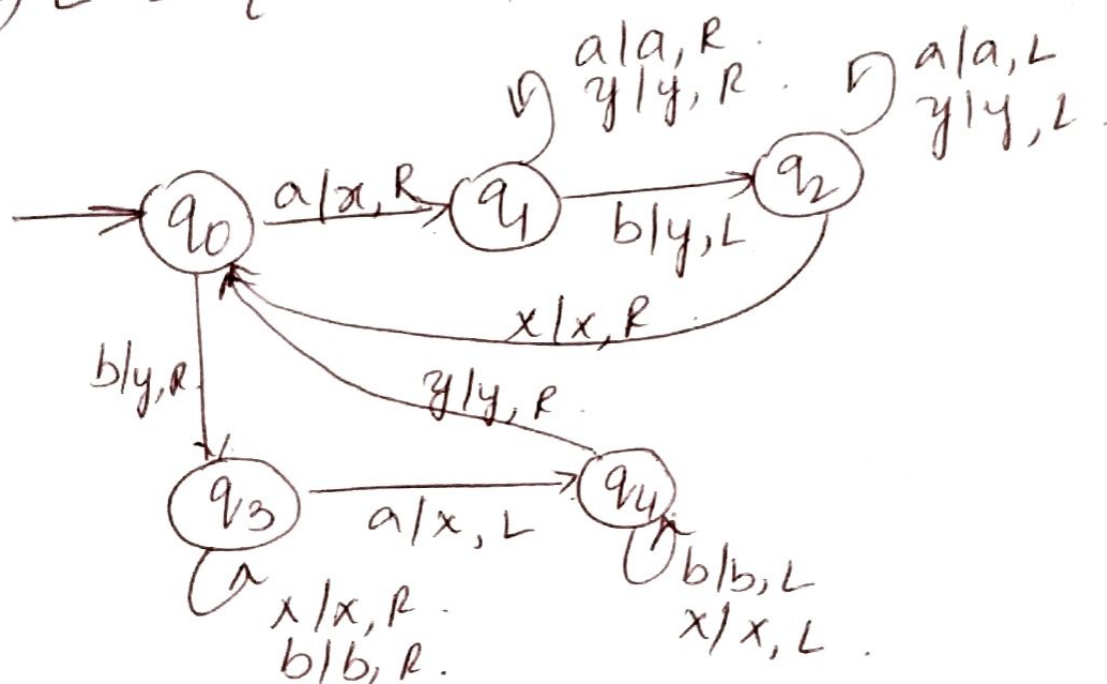 a/a, R.
y/y, R.
a/a, L
y/y, L.
q0
a/x, R
q1
b/y, L
q2
x/x, R
b/y, R.
y/y, R.
q3
a/x, L
q4
x/x, R.
b/b, R.
b/b, L
x/x, L.